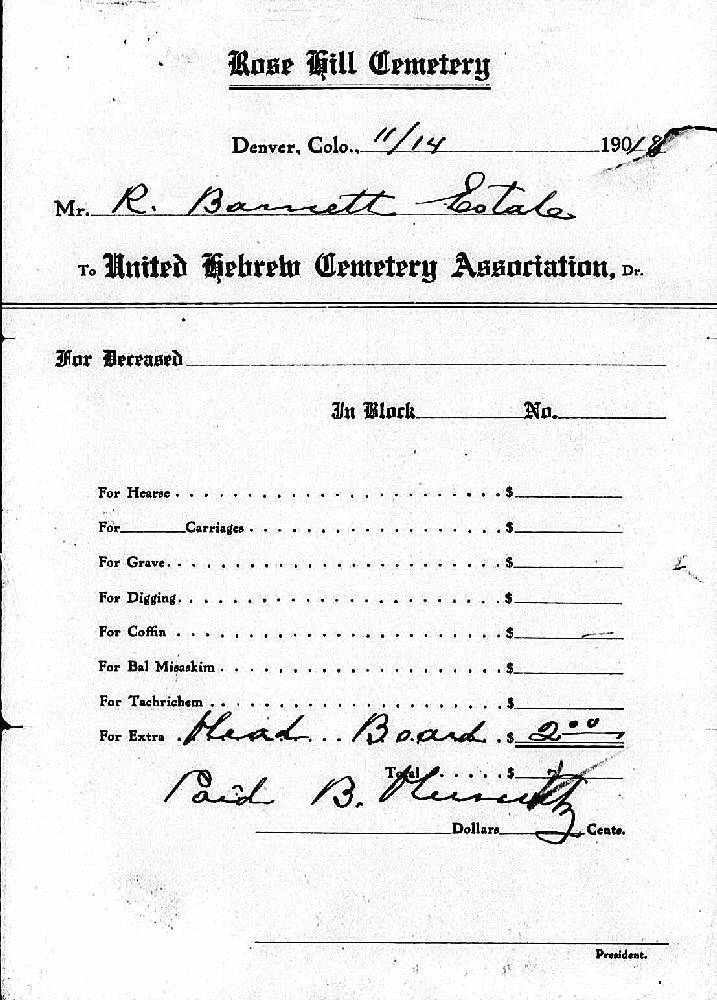 Rose Hill Cemetery
Denver, Colo., 11/14 1918
Mr. R. Barnett Estate
To United Hebrew Cemetery Association, Dr.
For Deceased
In Block No.
For Hearse $
For Carriages $
For Grave $
For Digging $
For Coffin $
For Bal Misaskim $
For Tachrichem $
For Extra Head Board $ 2.00
Total $
Paid B. Hurwitz
Dollars Cents.
President.